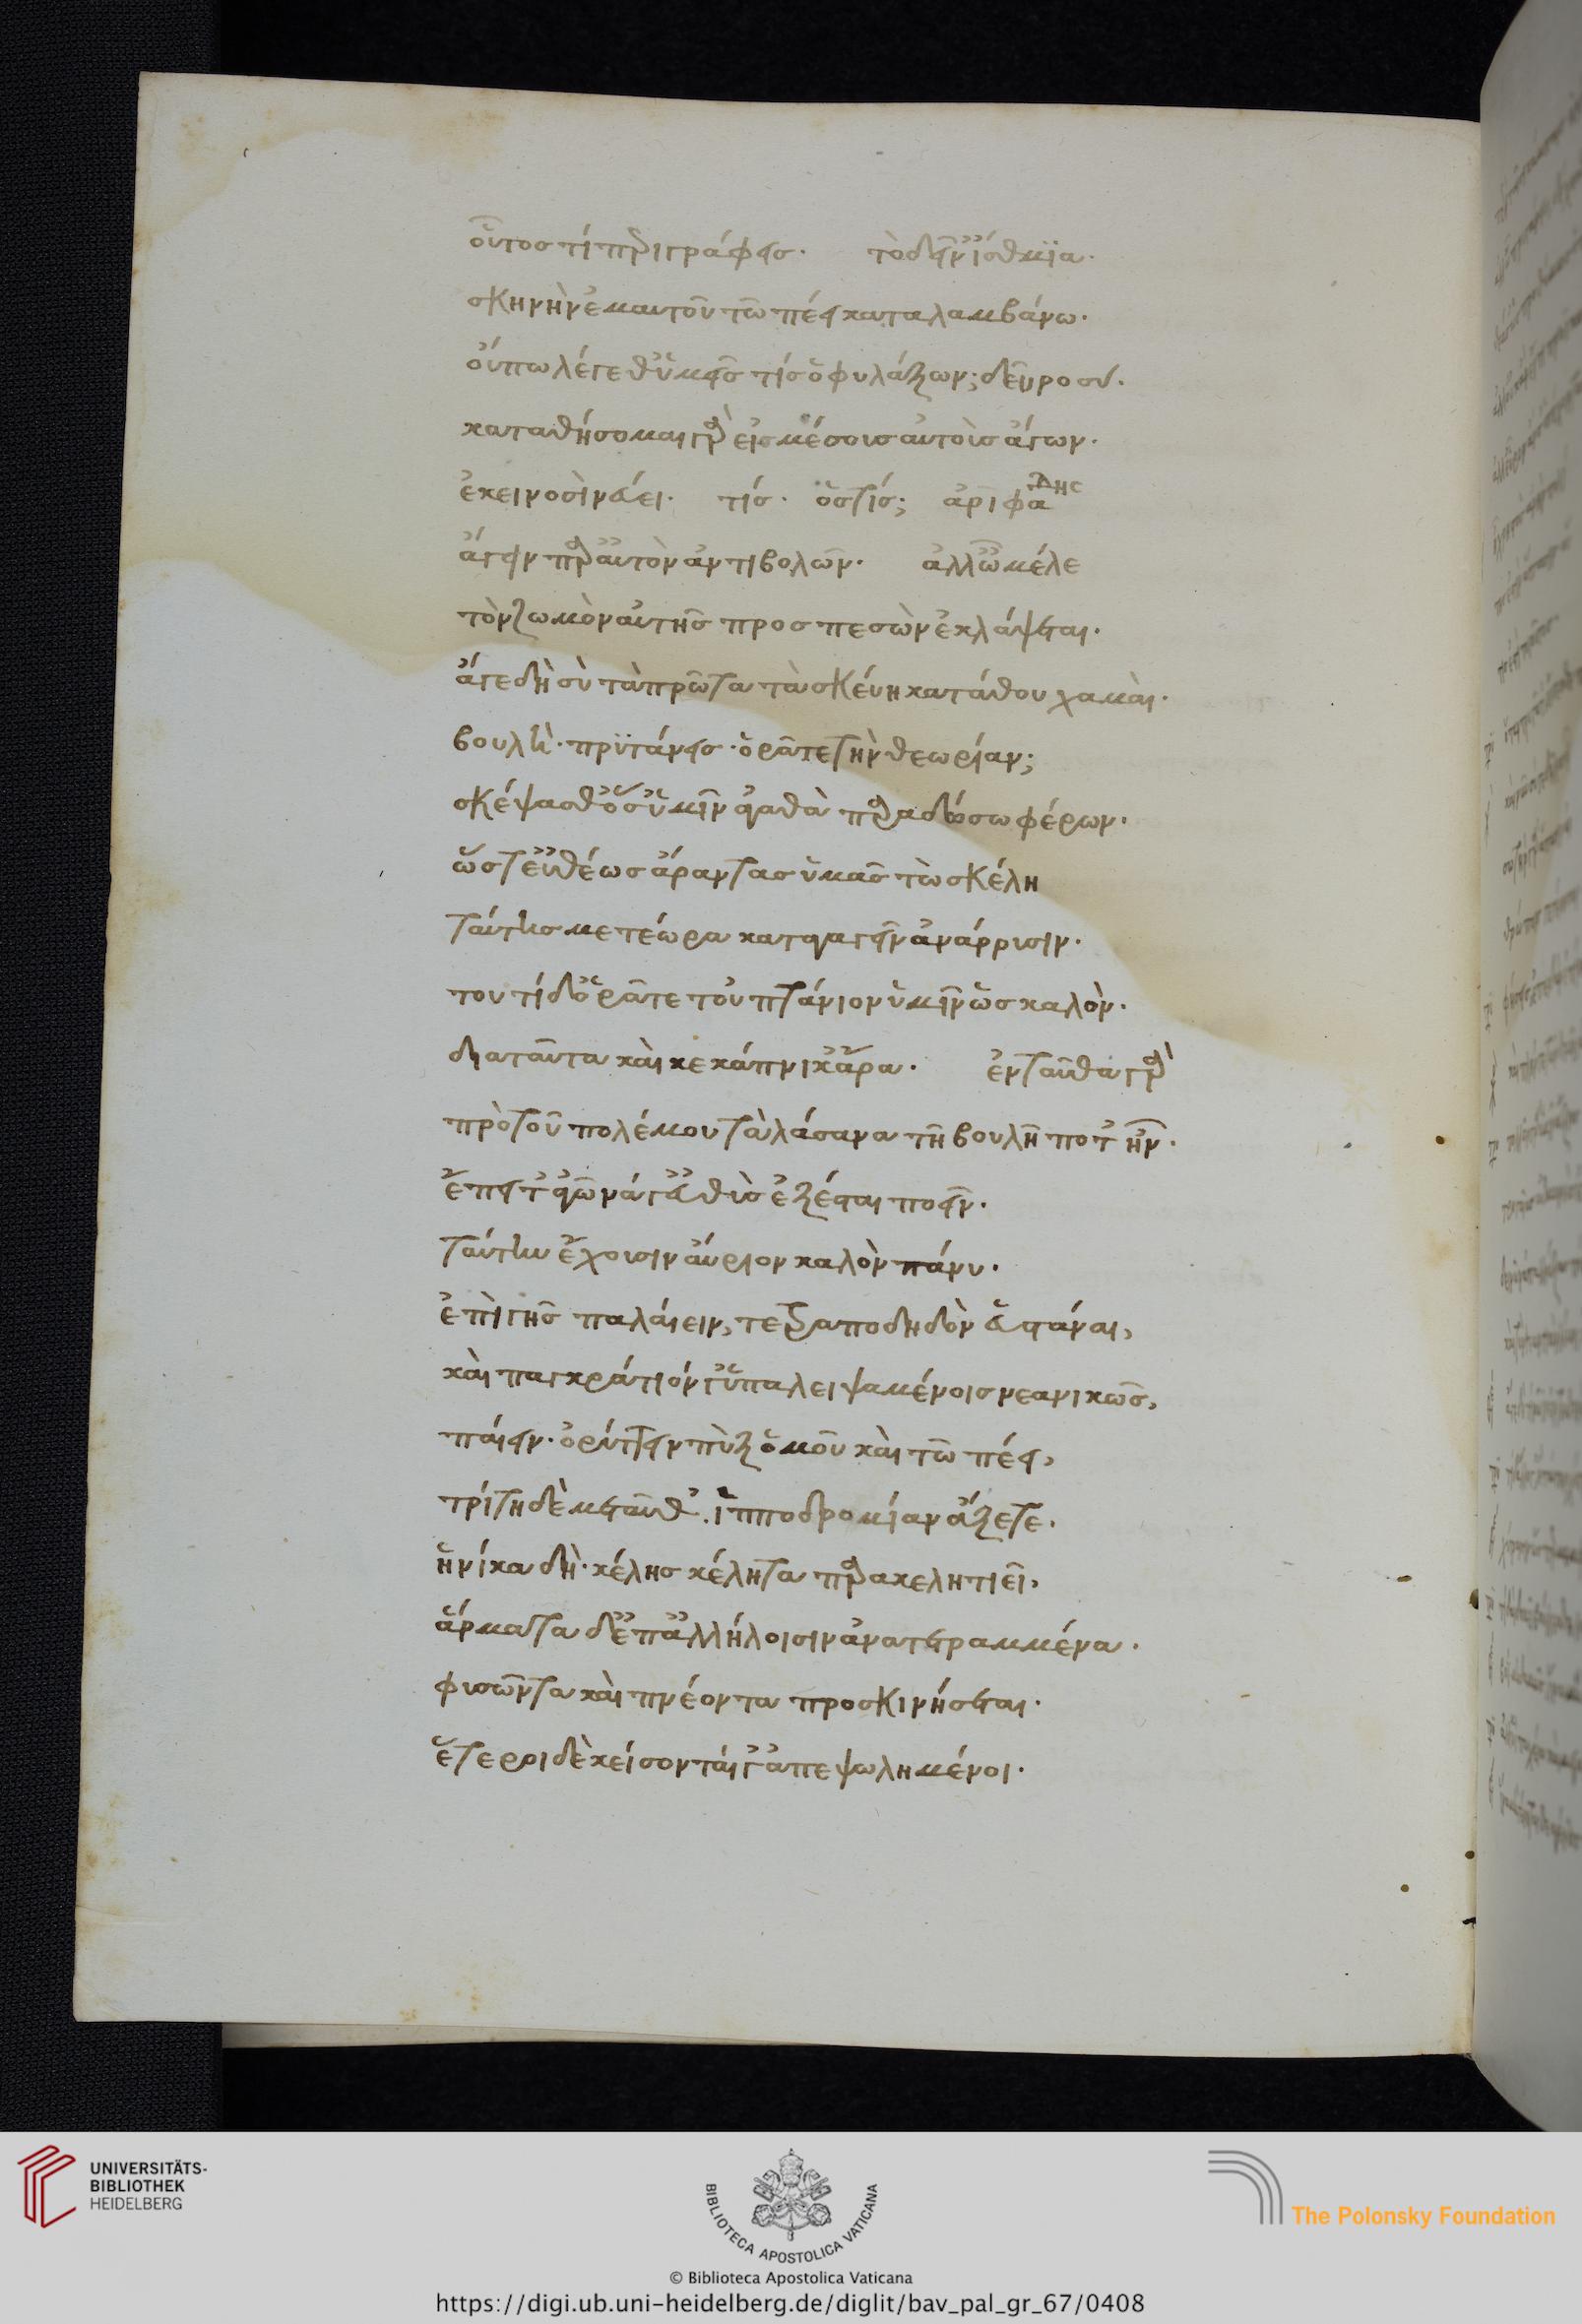 οὗτος τί περιγράφεις. τὸ δεῖν εἴσθμϊα.
σκηνὴν ἐμαυτοῦ τῶ πέει καταλαμβάνω.
οὔπω λέγεθ ὑμεῖς τίς ὁ φυλάξων; δεῦρο σύ.
καταθήσομαι γὰρ εἰς μέσους αὐτὸς ἄγων.
ἐκεινοσὶ νεύει. τίς. ὅστις; ἀριφράδης
ἄγειν παρ' αὐτὸν ἀντιβολῶν. ἀλλ' ὦ μέλε
τὸν ζωμὸν αὐτῆς προσπεσὼν ἐκλάψεται.
ἄγε δὴ σὺ τὰ πρῶτα τὰ σκεύη κατάθου χαμαί.
βουλὴ. πρϋτάνεις. ὁρᾶτε τὴν θεωρίαν;
σκέψασθ' ὅσ' ὑμῖν ἀγαθὰ παραδώσω φέρων.
ὥστ' εὐθέως ἄραντας ὑμᾶς τὼ σκέλη
ταύτης μετέωρα καταγαγεῖν ἀνάρρυσιν.
τουτί δ' ὁρᾶτε τοὐπτάνιον ὑμῖν ὡς καλὸν.
διαταῦτα καὶ κεκάπνικ' ἄρα. ἐνταῦθα γὰρ
πρὸ τοῦ πολέμου τὰ λάσανα τῆ βουλῆ ποτ' ἦν.
ἔπειτ' ἀγῶνά γ' εὐθὺς ἐξέσται ποεῖν.
ταύτην ἔχουσιν αὔριον καλὸν πάνυ.
ἐπὶ γῆς παλαίειν, τετραποδηδὸν ἑστάναι,
καὶ παγκράτιόν γ' ὑπαλειψαμένοις νεανικῶς,
παίειν. ὀρύττειν πὺξ ὁμοῦ καὶ τῶ πέει,
τρίτη δὲ μεταῦθ'. ἱπποδρομίαν ἄξετε.
ἡνίκα δὴ. κέλης κέλητα παρακελητιεῖ,
ἅρματα δ' ἐπ' ἀλλήλοισιν ἀνατετραμμένα.
φυσῶντα καὶ πνέοντα προσκινήσεται.
ἕτεροι δὲ κείσονταί γ' ἀπεψωλημένοι.
UNIVERSITÄTS-
BIBLIOTHEK
HEIDELBERG
BIBLIOTECA APOSTOLICA VATICANA
The Polonsky Foundation
© Biblioteca Apostolica Vaticana
https://digi.ub.uni-heidelberg.de/diglit/bav_pal_gr_67/0408